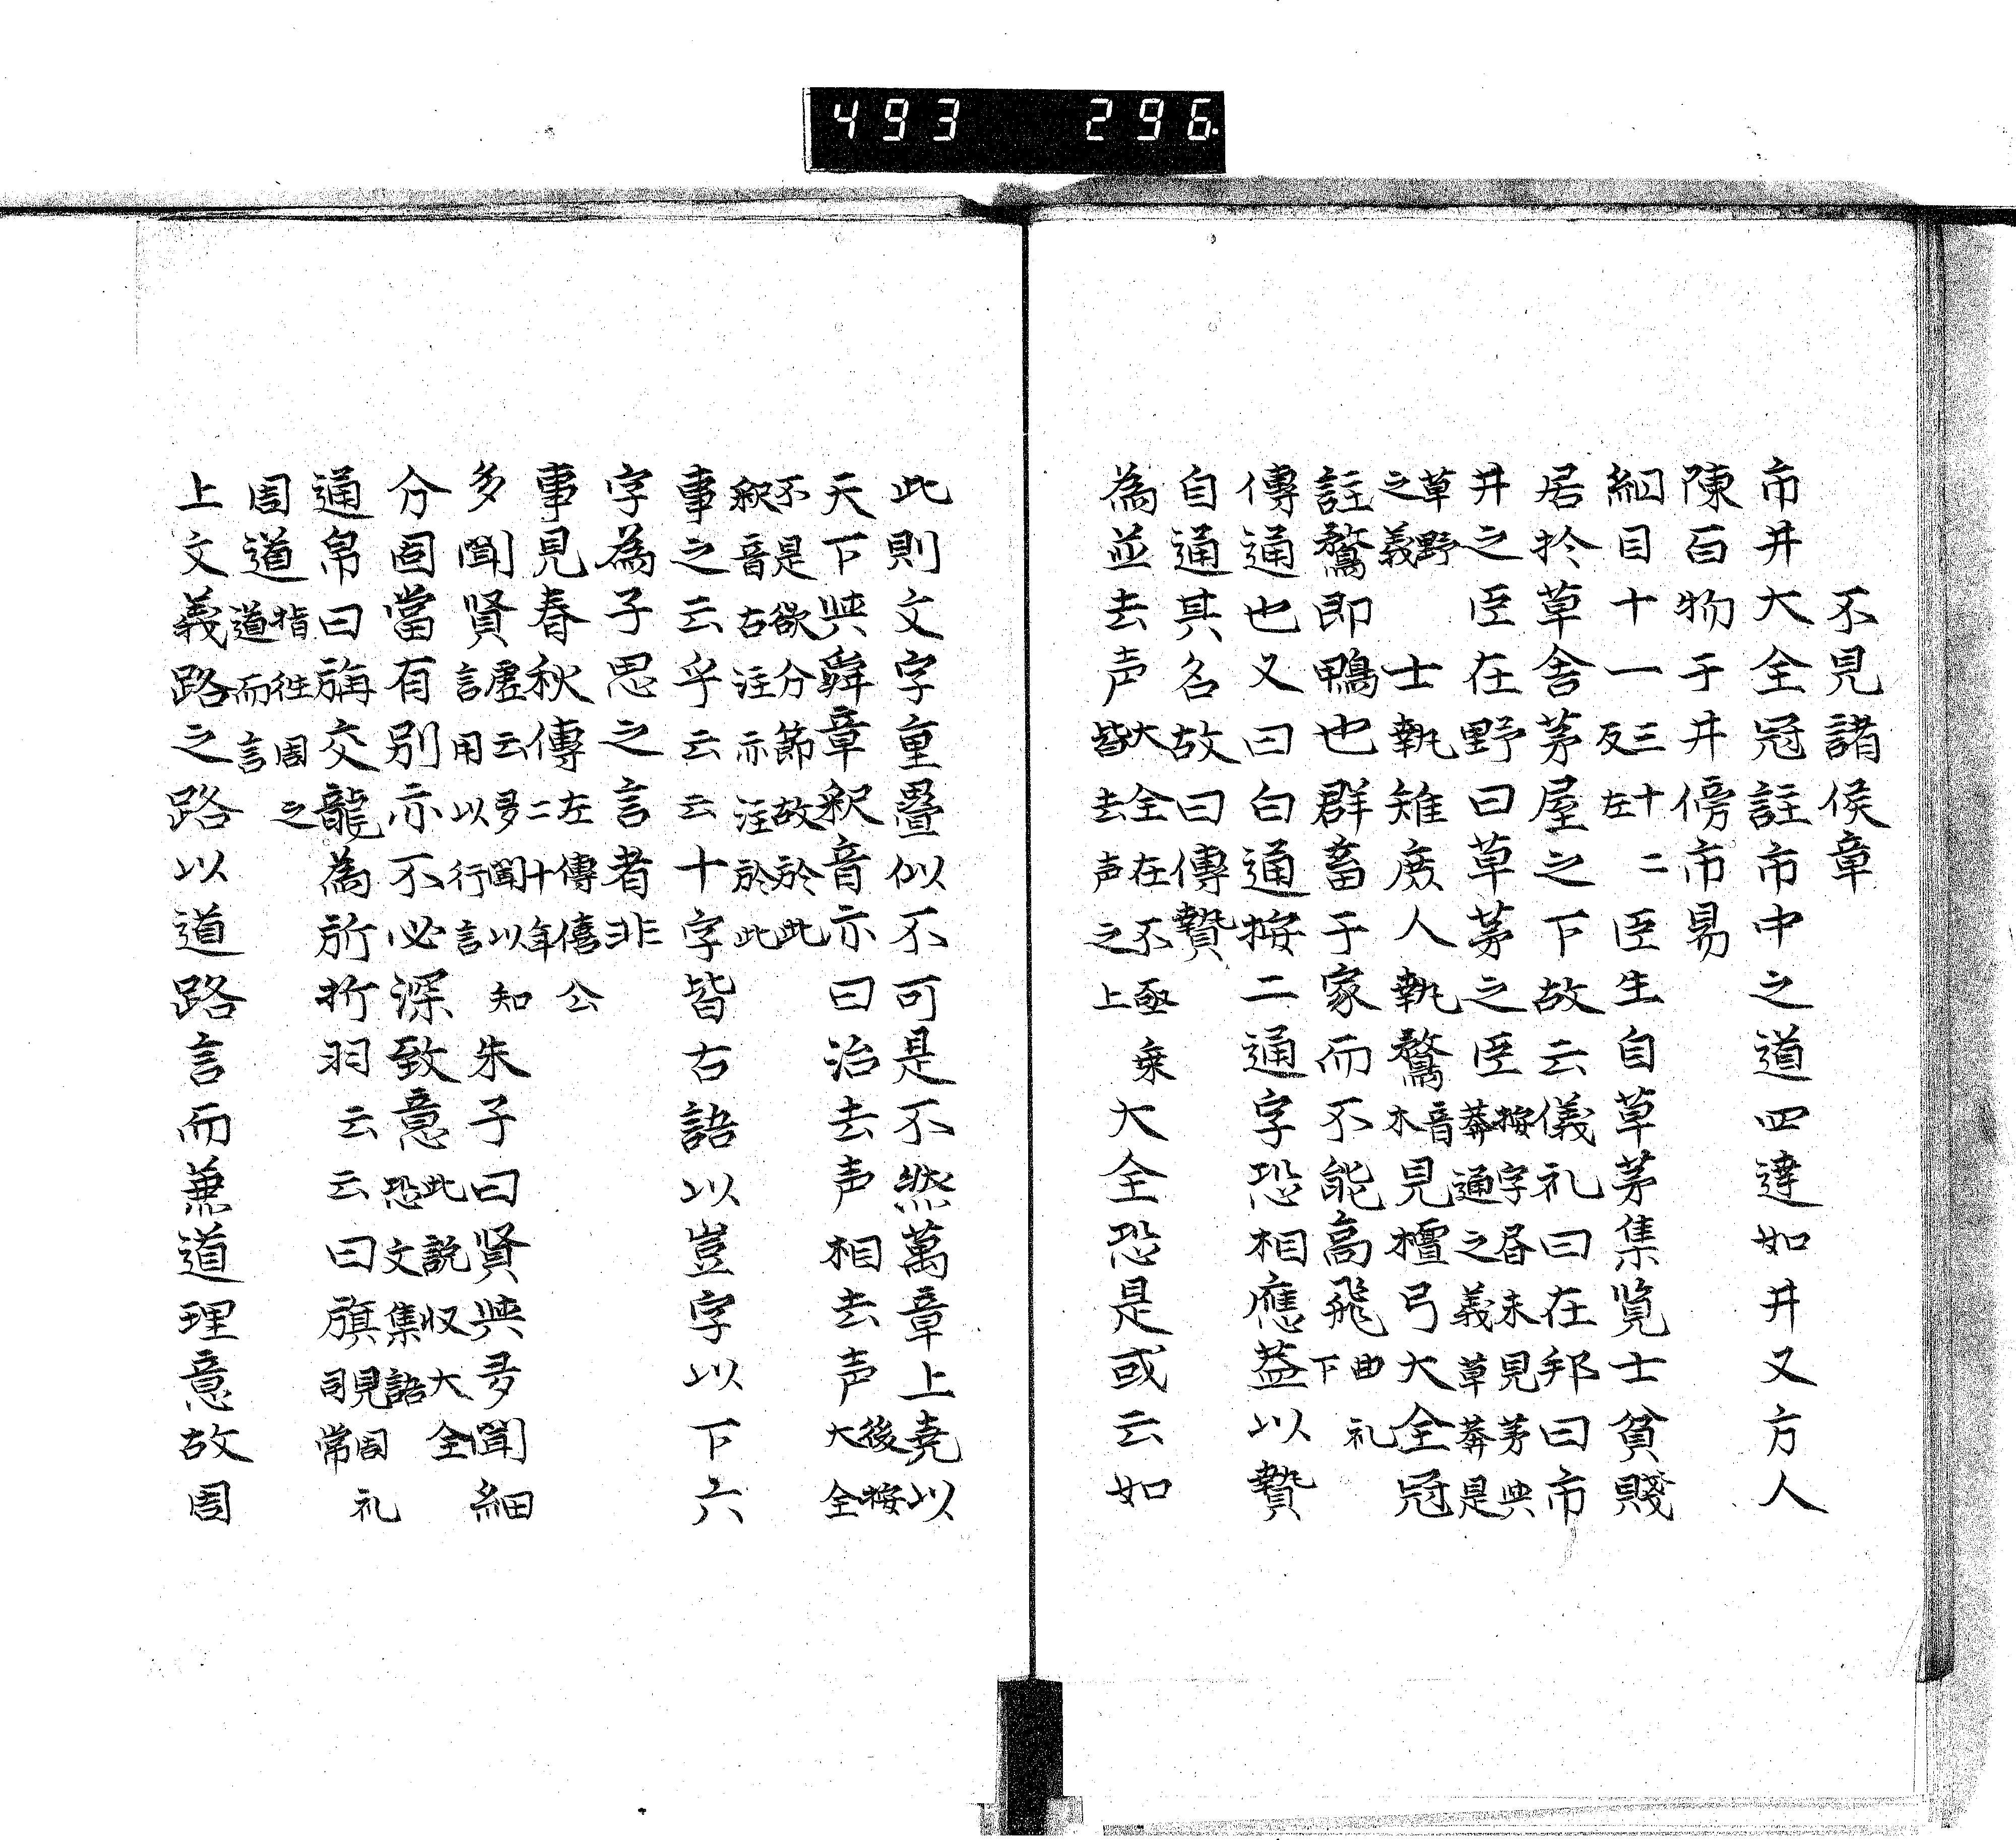 493 296
不見諸侯章
市井大全冠註市中之道四達如井又方人
陳百物于井傍市易
綱目十一三十二反左臣生自草茅集覧士貧賤
居於草舎茅屋之下故云儀礼曰在邦曰市
井之臣在野曰草茅之臣按字昏未見茅與莽通之義草莽是
草野之義士執雉庶人執鶩音木見檀弓大全冠
註鶩即鴨也群畜于家而不能高飛曲礼下
傳通也又曰白通按二通字恐相應蓋以贄
自通其名故曰傳贄
為並去声大全在不亟乗皆去声之上大全恐是或云如
此則文字重畳似不可是不然萬章上堯以
天下與舜章釈音亦曰治去声相去声後按大全
不是欲分節故於此釈音右注亦注於此
事之云乎云云十字皆古語以豈字以下六
字為子思之言者非
事見春秋傳左傳僖公二十年
多聞賢虚云多聞以知言用以行言朱子曰賢與多聞細
分固當有別亦不必深致意此説収大全恐文集語
通帛曰旃交龍為旂析羽云云曰旗見周礼司常
周道指往周之道而言
上文義路之路以道路言而兼道理意故周